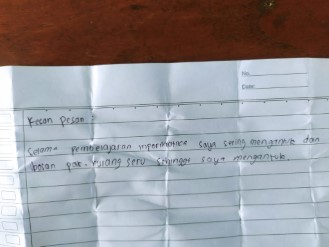 No.
Date:
Kesan pesan =
Selama pembelajaran informatika saya sering mengantuk dan
bosan pak. kurang seru sehingga saya mengantuk.